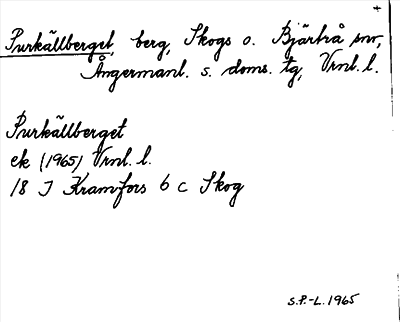 +
Purkällberget, berg, Skogs o. Bjärtrå snr,
Ångermanl. s. doms. tg, Vrnl. l.
Purkällberget
ek (1965) Vrnl. l.
18 J Kramfors 6 c Skog
S.P.-L. 1965